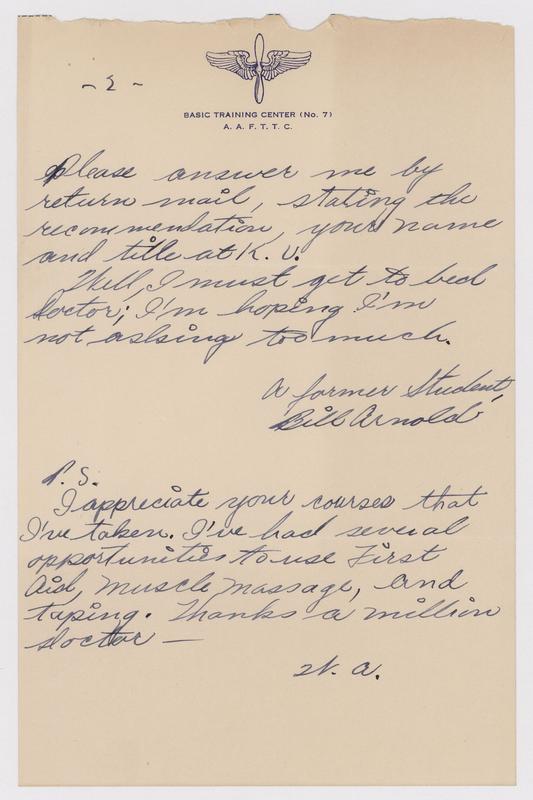 - 2 -
BASIC TRAINING CENTER (No. 7)
A. A. F. T. T. C.
Please answer me by
return mail, stating the
recommendation, your name
and title at K. U.
Well, I must get to bed
doctor; I'm hoping I'm
not asking too much.
A former Student,
Bill Arnold
P. S.
I appreciate your courses that
I've taken. I've had several
opportunities to use First
Aid, muscle massage, and
taping. Thanks a million
doctor —
W. A.